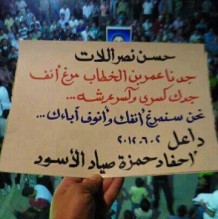 حسن نصر اللات
جدنا عمر بن الخطاب مرغ أنف
جدك كسرى وكسر عرشه...
نحن سنمرغ أنفك وأنوف أباءك...
داعل ٢٠١٢.٦.٢
أحفاد حمزة صياد الأسود